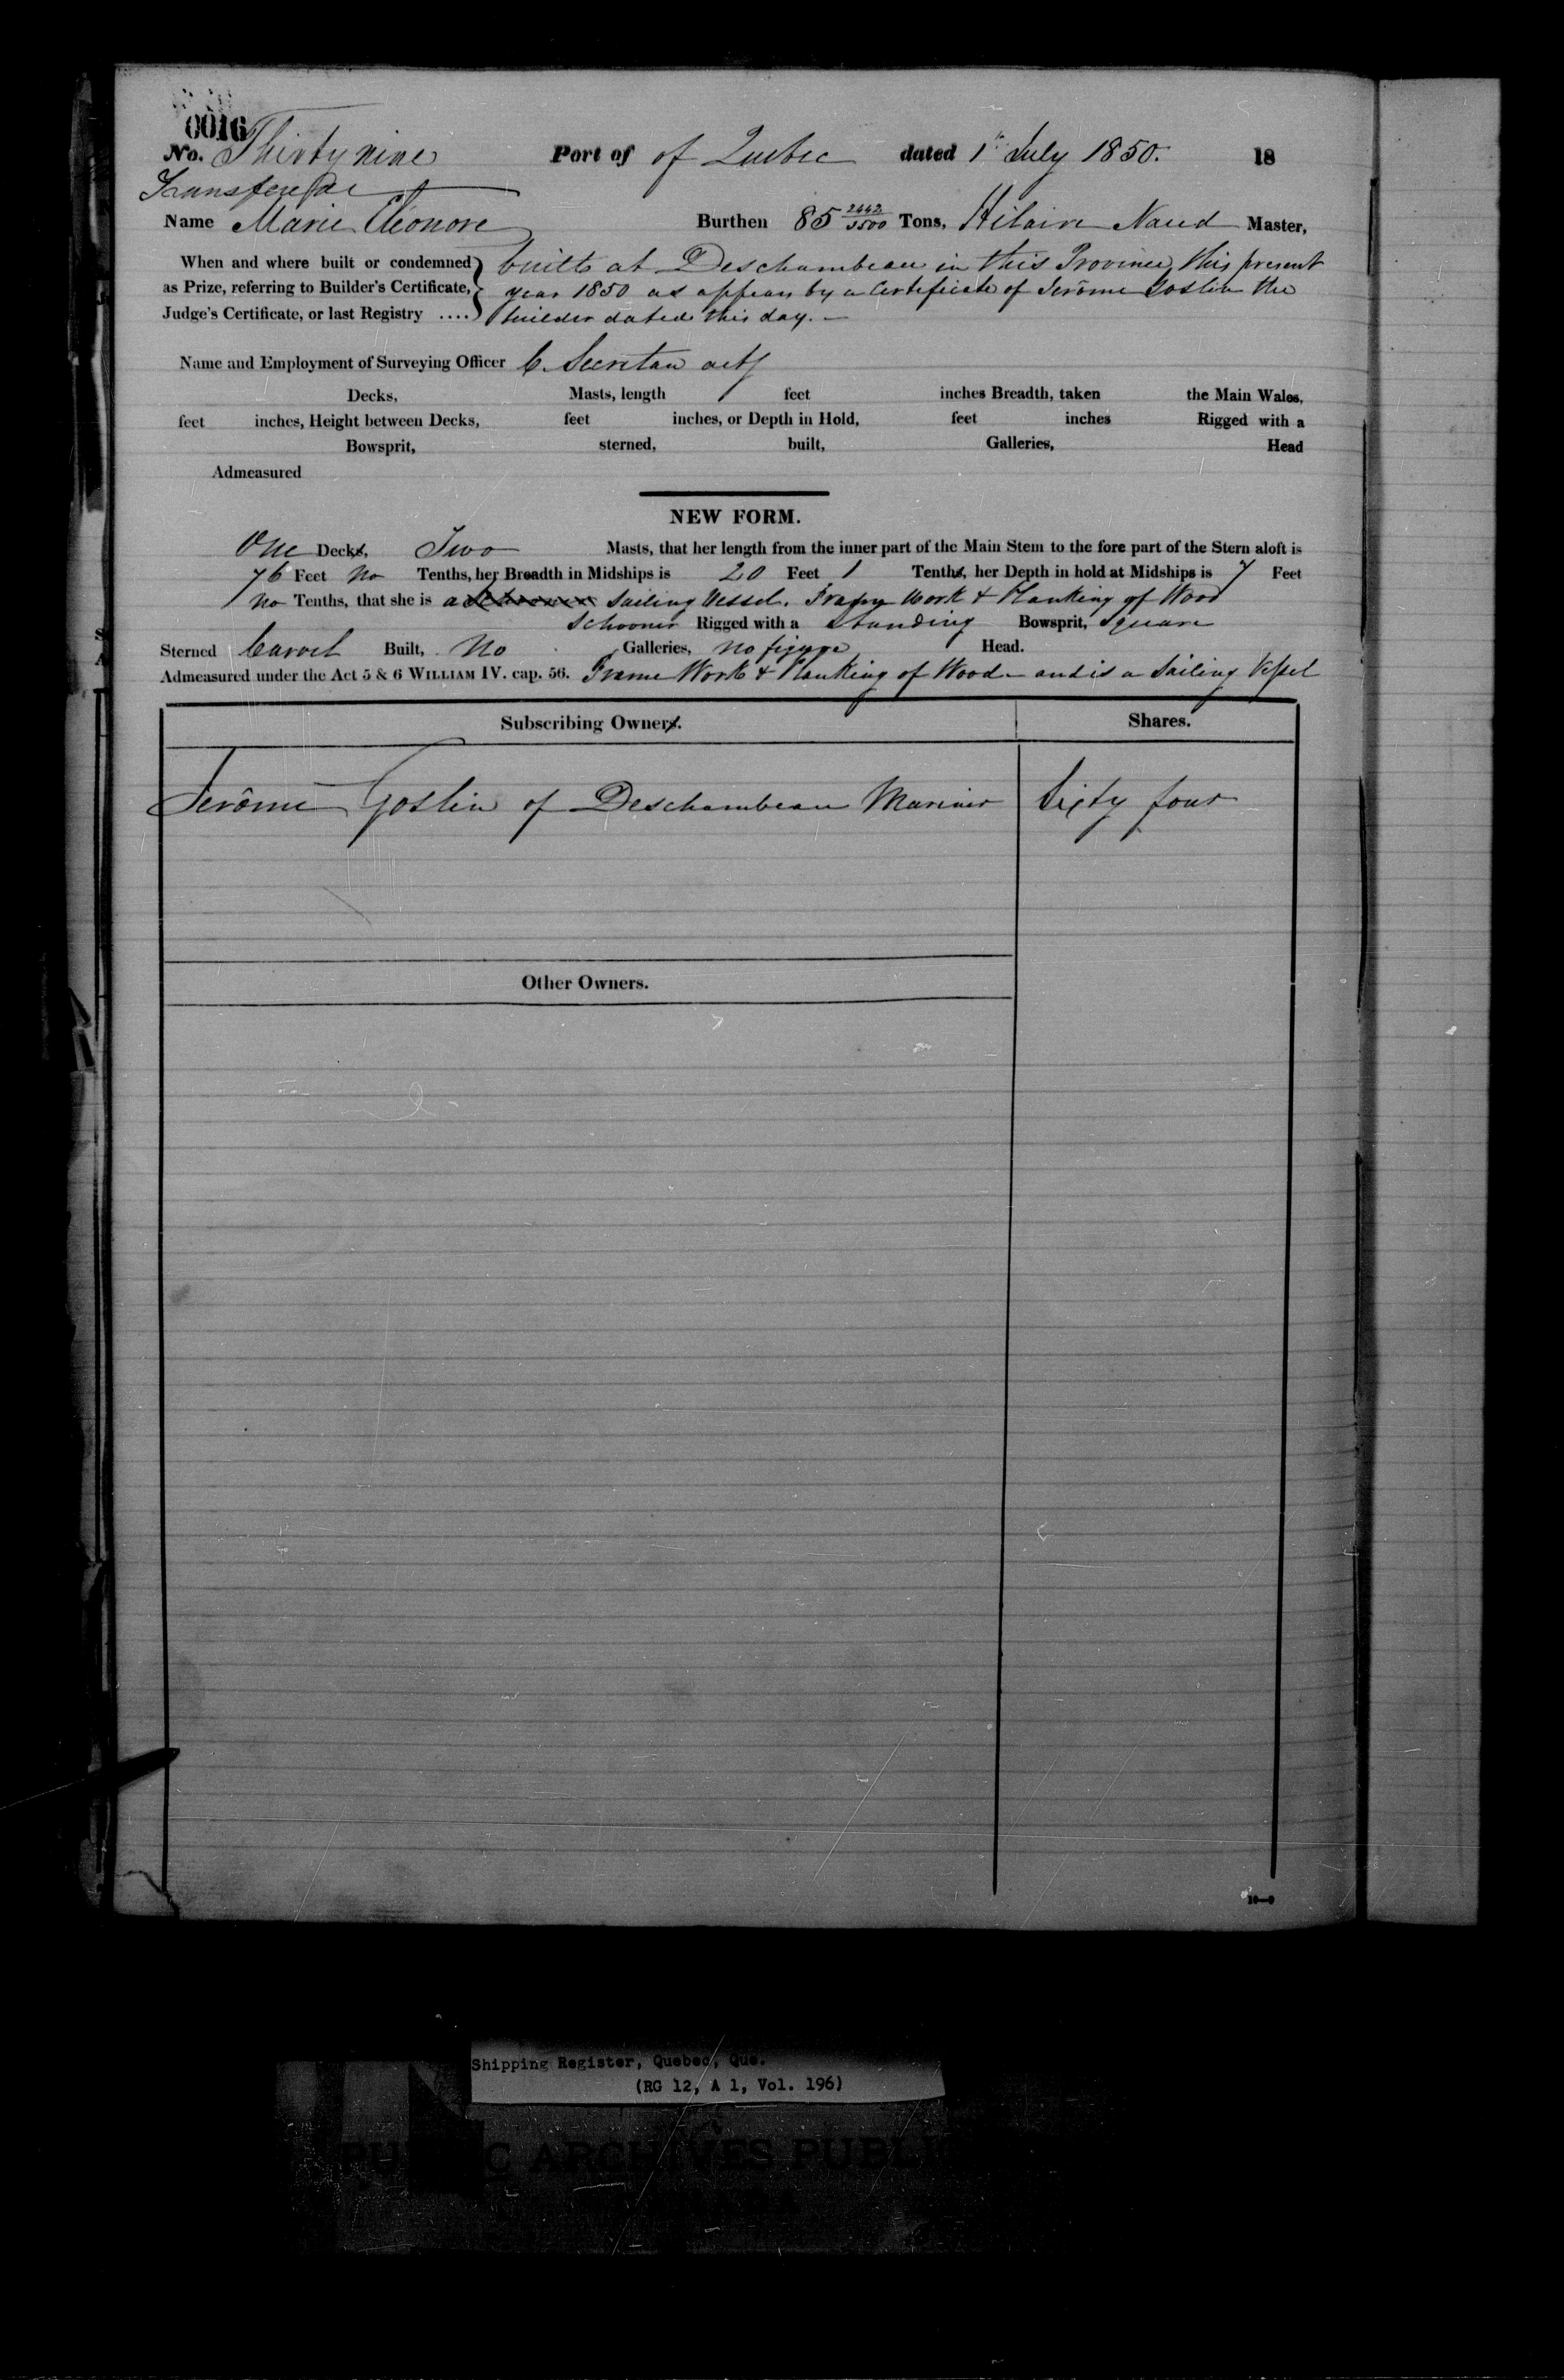 0016
No. Thirty nine Port of of Quebec dated 1st July 1850. 18
Transfere
Name Marie Eleonore Burthen 85 2442/3500 Tons, Hilaire Naud Master,
When and where built or condemned built at Deschambeau in this Province, this present
as Prize, referring to Builder's Certificate, year 1850 as appears by a Certificate of Jerôme Goslin the
Judge's Certificate, or last Registry .... builder dated this day. —
Name and Employment of Surveying Officer C. Secretan actg
Decks, Masts, length feet inches Breadth, taken the Main Wales,
feet inches, Height between Decks, feet inches, or Depth in Hold, feet inches Rigged with a
Bowsprit, sterned, built, Galleries, Head
Admeasured
NEW FORM.
One Decks, Two Masts, that her length from the inner part of the Main Stem to the fore part of the Stern aloft is
76 Feet no Tenths, her Breadth in Midships is 20 Feet 1 Tenths, her Depth in hold at Midships is 7 Feet
no Tenths, that she is a Schooner Sailing Vessel. Frame Work & Planking of Wood
Schooner Rigged with a Standing Bowsprit, Square
Sterned Carvel Built, No Galleries, no figure Head.
Admeasured under the Act 5 & 6 WILLIAM IV. cap. 56. Frame Work & Planking of Wood — and is a Sailing Vessel
Subscribing Owners. Shares.
Jerôme Goslin of Deschambeau Mariner Sixty four
Other Owners.
10—9
Shipping Register, Quebec, Que.
(RG 12, A 1, Vol. 196)
ARCHIVES